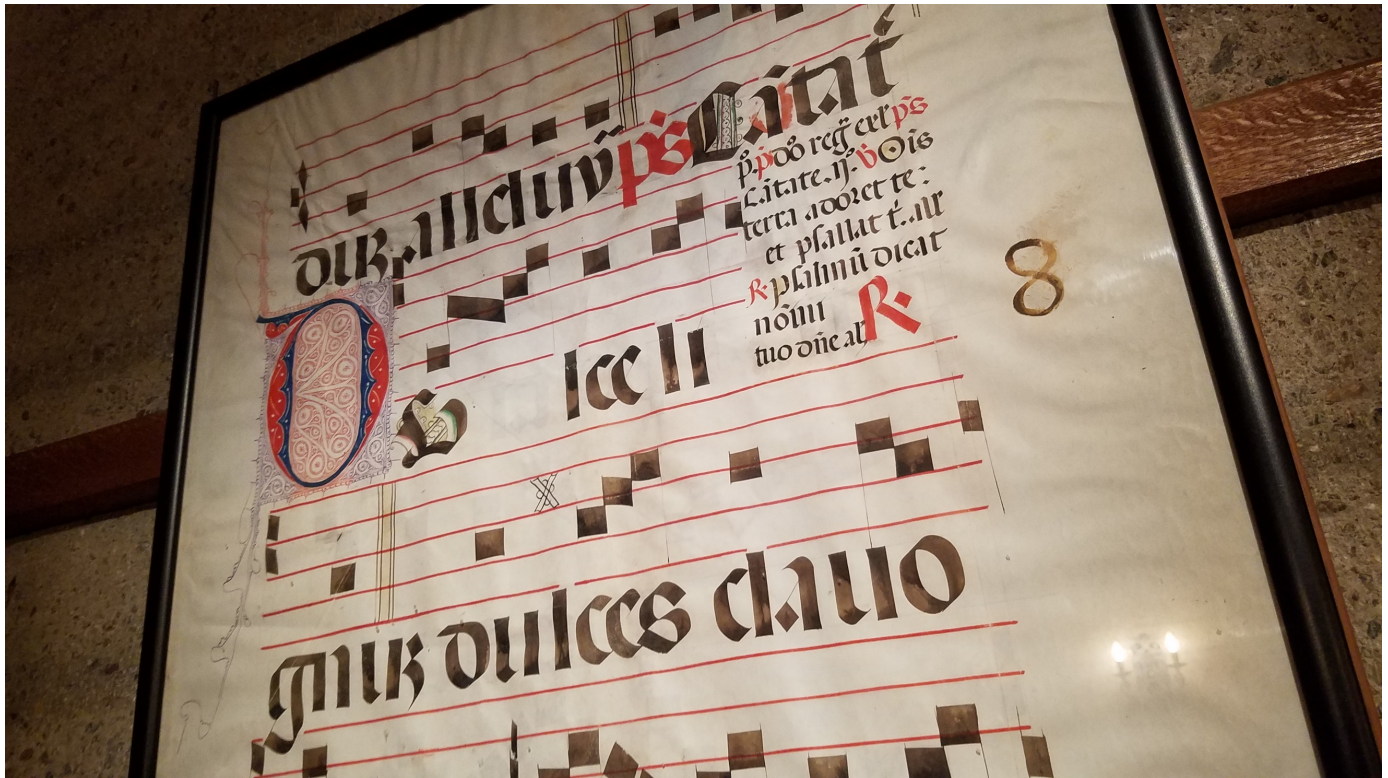 dur alleluya ps Cātat
p. p. doō reḡ exl ps
Cātate. ij. V Ois
terra adoret te :
et psallat t. all
R. psalmū dicat
nomī
tuo dn̄e all R.
8
Dulce li
gnuʒ dulces clauo